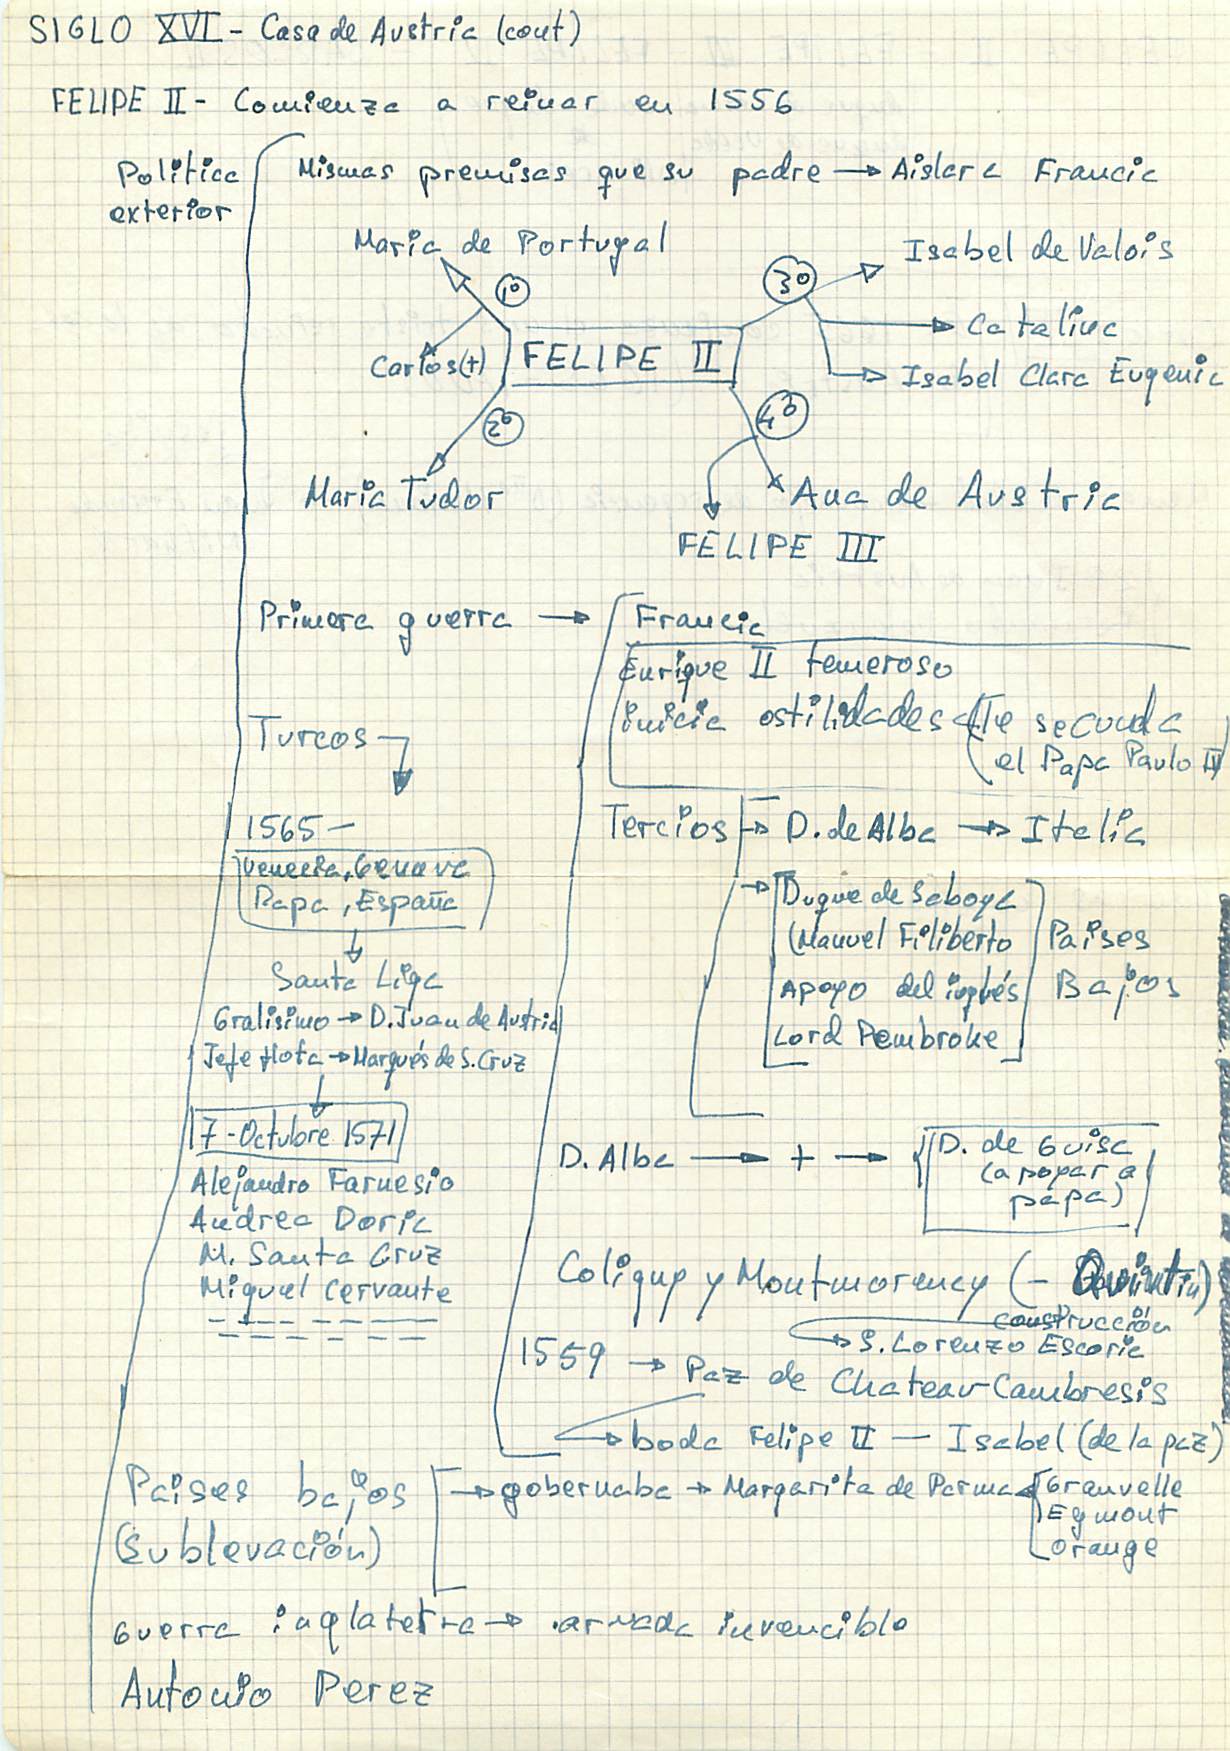 SIGLO XVI - Casa de Austria (cont)
FELIPE II - Comienza a reinar en 1556
Politica exterior
Mismas premisas que su padre → Aislar a Francia
Maria de Portugal
1º
Carlos (+)
FELIPE II
2º
Maria Tudor
3º
Isabel de Valois
Catalina
Isabel Clara Eugenia
4º
Ana de Austria
FELIPE III
Primera guerra →
Francia
Enrique II temeroso
inicia ostilidades
Te secunda
el Papa Paulo IV
Turcos
1565 -
Venecia, Genova
Papa, España
Santa Liga
Gralisimo → D. Juan de Austria
Jefe flota → Marqués de S. Cruz
7 - Octubre 1571
Alejandro Farnesio
Andrea Doria
M. Santa Cruz
Miguel Cervante
Tercios → D. de Alba → Italia
→ Duque de Saboya
(Manuel Filiberto
Apoyo del inglés
Lord Pembroke
Paises
Bajos
D. Alba → + → D. de Guisa
(apoyar a
papa)
Coligny y Montmorency (- Quintin)
construcción
→ S. Lorenzo Escoria
1559 → Paz de Chateau-Cambresis
→ boda Felipe II — Isabel (de la paz)
Paises bajos
(Sublevación)
→ gobernaba → Margarita de Parma
Granvelle
Egmont
Orange
Guerra inglaterra → armada invencible
Antonio Perez